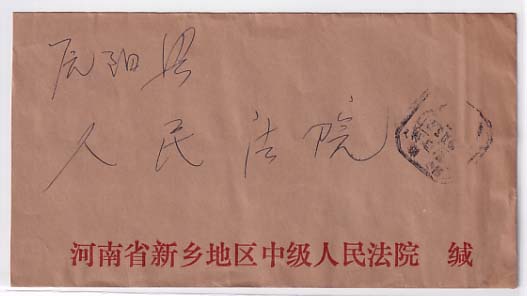 原阳县
人民法院
河南省新乡地区中级人民法院 缄